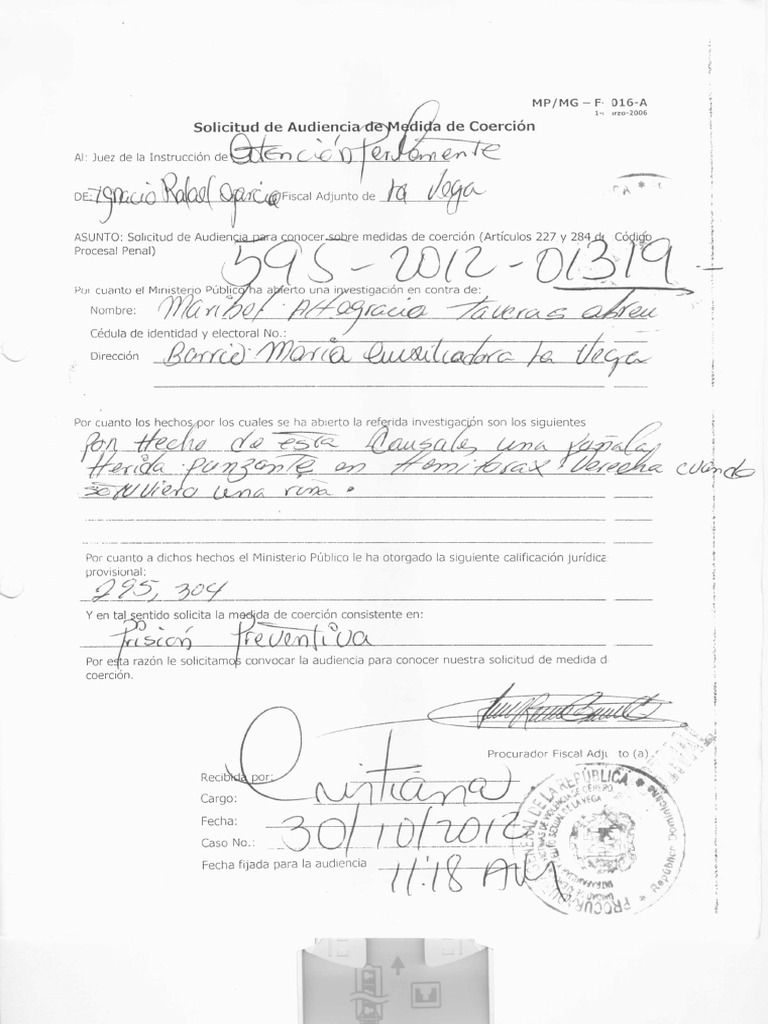 MP/MG – F- 016-A
Solicitud de Audiencia de Medida de Coerción
Al: Juez de la Instrucción de Atención Permamente
DE: Ignacio Rafael Garcia Fiscal Adjunto de La Vega
ASUNTO: Solicitud de Audiencia para conocer sobre medidas de coerción (Artículos 227 y 284 de Código
Procesal Penal)
595-2012-01319
Por cuanto el Ministerio Público ha abierto una investigación en contra de:
Nombre: Maribel Altagracia Taveras Abreu
Cédula de identidad y electoral No.:
Dirección Barrio María Auxiliadora La Vega
Por cuanto los hechos por los cuales se ha abierto la referida investigación son los siguientes
Por Hecho de esta Causales una
Herida Punzante en Hemitorax Derecha cuando
una riña.
Por cuanto a dichos hechos el Ministerio Público le ha otorgado la siguiente calificación jurídica
provisional:
295, 304
Y en tal sentido solicita la medida de coerción consistente en:
Prisión Preventiva
Por esta razón le solicitamos convocar la audiencia para conocer nuestra solicitud de medida d
coerción.
Procurador Fiscal Adju to (a)
Recibida por: Cristiana
Cargo:
Fecha: 30/10/2012
Caso No.:
Fecha fijada para la audiencia 11:18 AM